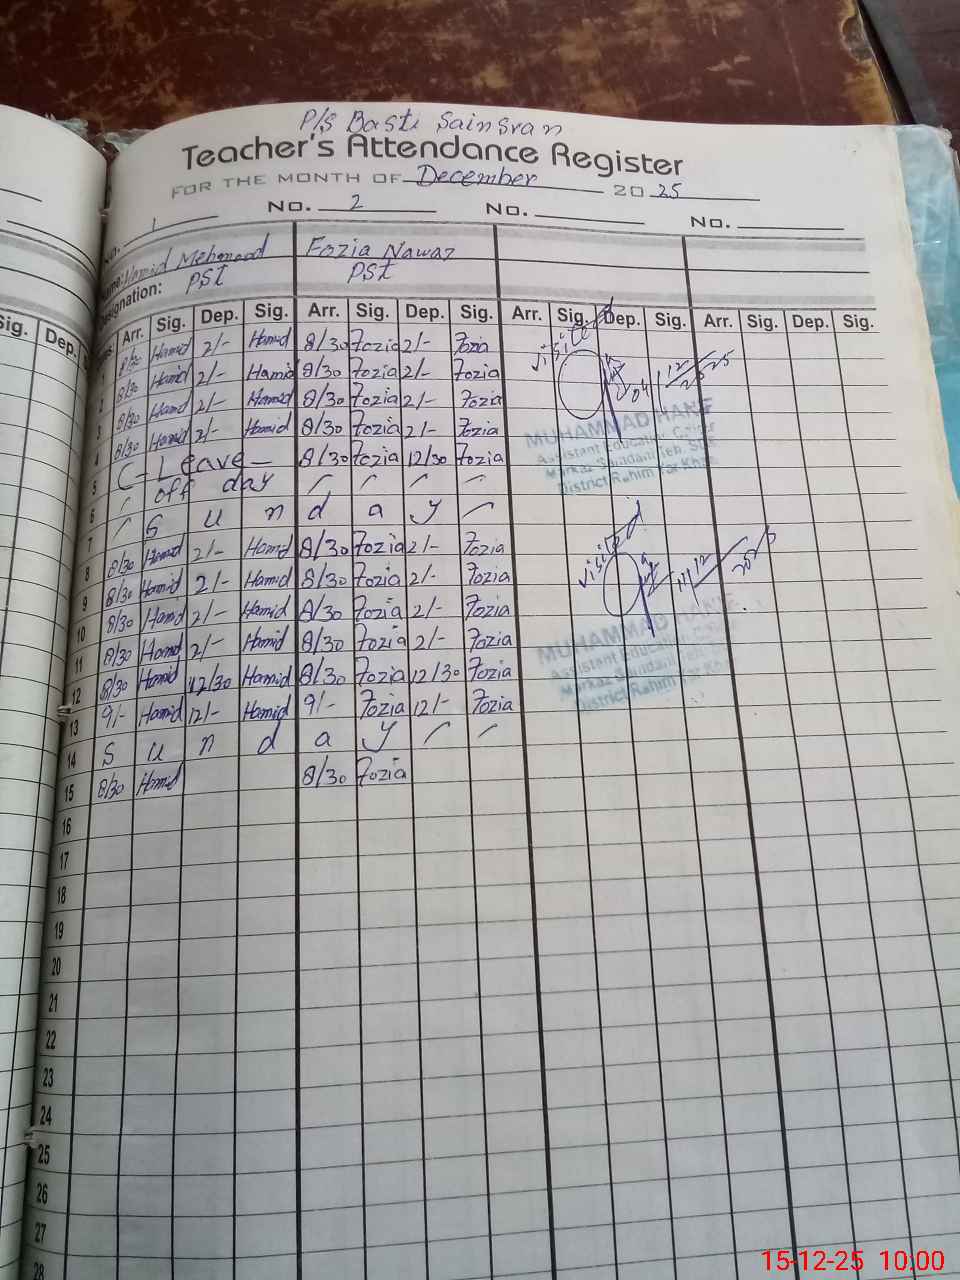 P/S Basti Sainsran
Teacher's Attendance Register
FOR THE MONTH OF December 2025
No. 1 No. 2 No. No.
Name: Hamid Mehmood Fozia Nawaz
Designation: PST PST
Arr. Sig. Dep. Sig. Arr. Sig. Dep. Sig. Arr. Sig. Dep. Sig. Arr. Sig. Dep. Sig.
1 8/30 Hamid 2/- Hamid 8/30 Fozia 2/- Fozia
2 8/30 Hamid 2/- Hamid 8/30 Fozia 2/- Fozia
3 8/30 Hamid 2/- Hamid 8/30 Fozia 2/- Fozia
4 8/30 Hamid 2/- Hamid 8/30 Fozia 2/- Fozia
5 C-Leave- 8/30 Fozia 12/30 Fozia
6 off day
7 S u n d a y
8 8/30 Hamid 2/- Hamid 8/30 Fozia 2/- Fozia
9 8/30 Hamid 2/- Hamid 8/30 Fozia 2/- Fozia
10 8/30 Hamid 2/- Hamid 8/30 Fozia 2/- Fozia
11 8/30 Hamid 2/- Hamid 8/30 Fozia 2/- Fozia
12 8/30 Hamid 12/30 Hamid 8/30 Fozia 12/30 Fozia
13 9/- Hamid 12/- Hamid 9/- Fozia 12/- Fozia
14 S u n d a y
15 8/30 Hamid 8/30 Fozia
16
17
18
19
20
21
22
23
24
25
26
27
28
visited
04/12/2025
MUHAMMAD HANIF
Assistant Education Officer
District Rahim Yar Khan
visited
11/12/2025
MUHAMMAD HANIF
Assistant Education
District Rahim Yar Khan
Sig. Dep.
15-12-25 10:00